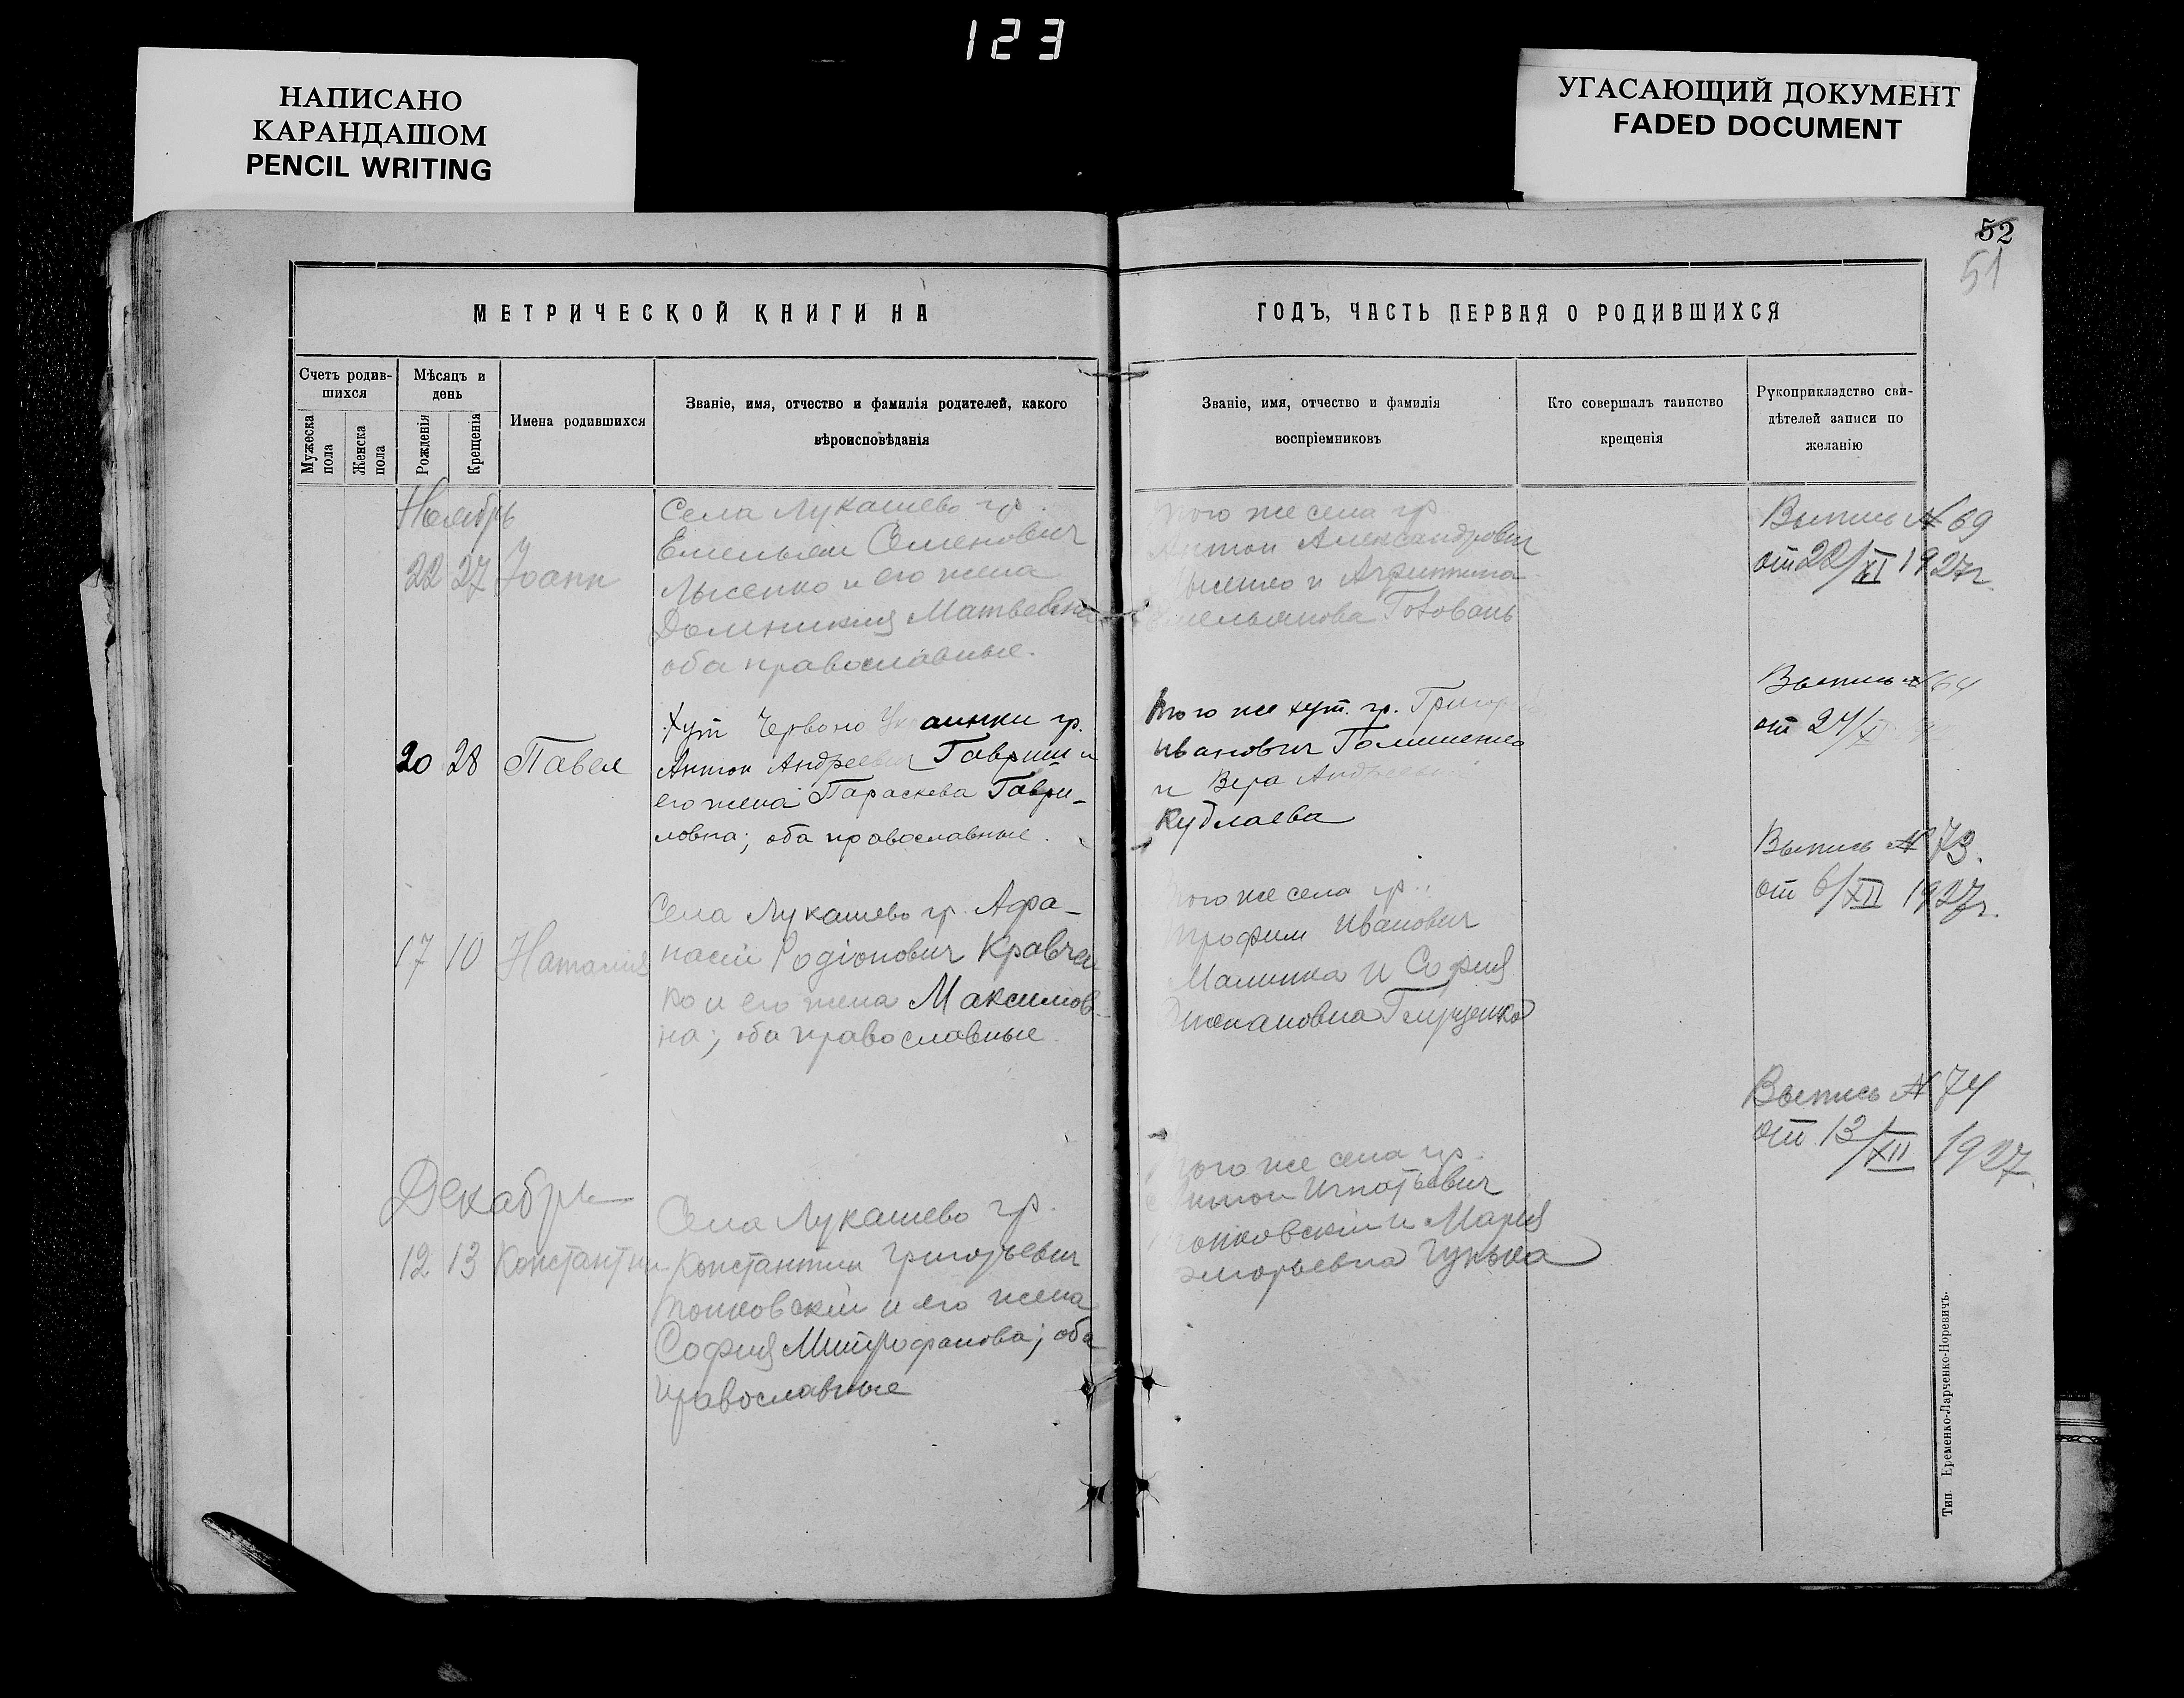 123
НАПИСАНО
КАРАНДАШОМ
PENCIL WRITING
УГАСАЮЩИЙ ДОКУМЕНТ
FADED DOCUMENT
52
51
МЕТРИЧЕСКОЙ КНИГИ НА
Счетъ родив-
шихся
Мужеска
пола
Женска
пола
Мѣсяцъ и
день
Рожденія
Крещенія
Имена родившихся
Званіе, имя, отчество и фамилія родителей, какого
вѣроисповѣданія
ГОДЪ, ЧАСТЬ ПЕРВАЯ О РОДИВШИХСЯ
Званіе, имя, отчество и фамилія
воспріемниковъ
Кто совершалъ таинство
крещенія
Рукоприкладство сви-
дѣтелей записи по
желанію
Ноябрь
22 27 Іоанн
Села Лукашево гр.
Емельян Семенович
Лысенко и его жена
Домникия Матвеевна
оба православные.
того же села гр.
Антон Александрович
Лысенко и Агриппина
Емельянова
Выпись № 69
от 22/XI 1927г.
20 28 Павел
Хут Червоно Украинки гр.
Антон Андреевич Гавриш и
его жена Параскева Гаври-
ловна; оба православные.
того же хут. гр. Григорий
Иванович
и Вера Андреевна
Кублаева
Выпись № 64
от 24/XI
17 10 Наталия
Села Лукашево гр. Афа-
насий Родіонович Кравчен
ко и его жена Максимов-
на; оба православные.
того же села гр.
Трофим Иванович
Малинка и София
Выпись № 73.
от 6/XII 1927г.
Декабрь
12 13 Константин
Села Лукашево гр.
Константин Григорьевич
и его жена
София Митрофанова; оба
православные
того же села гр.
Антон Игнатьевич
и Мария
Выпись № 74
от 13/XII 1927
Тип. Еременко-Ларченко-Норевичъ.